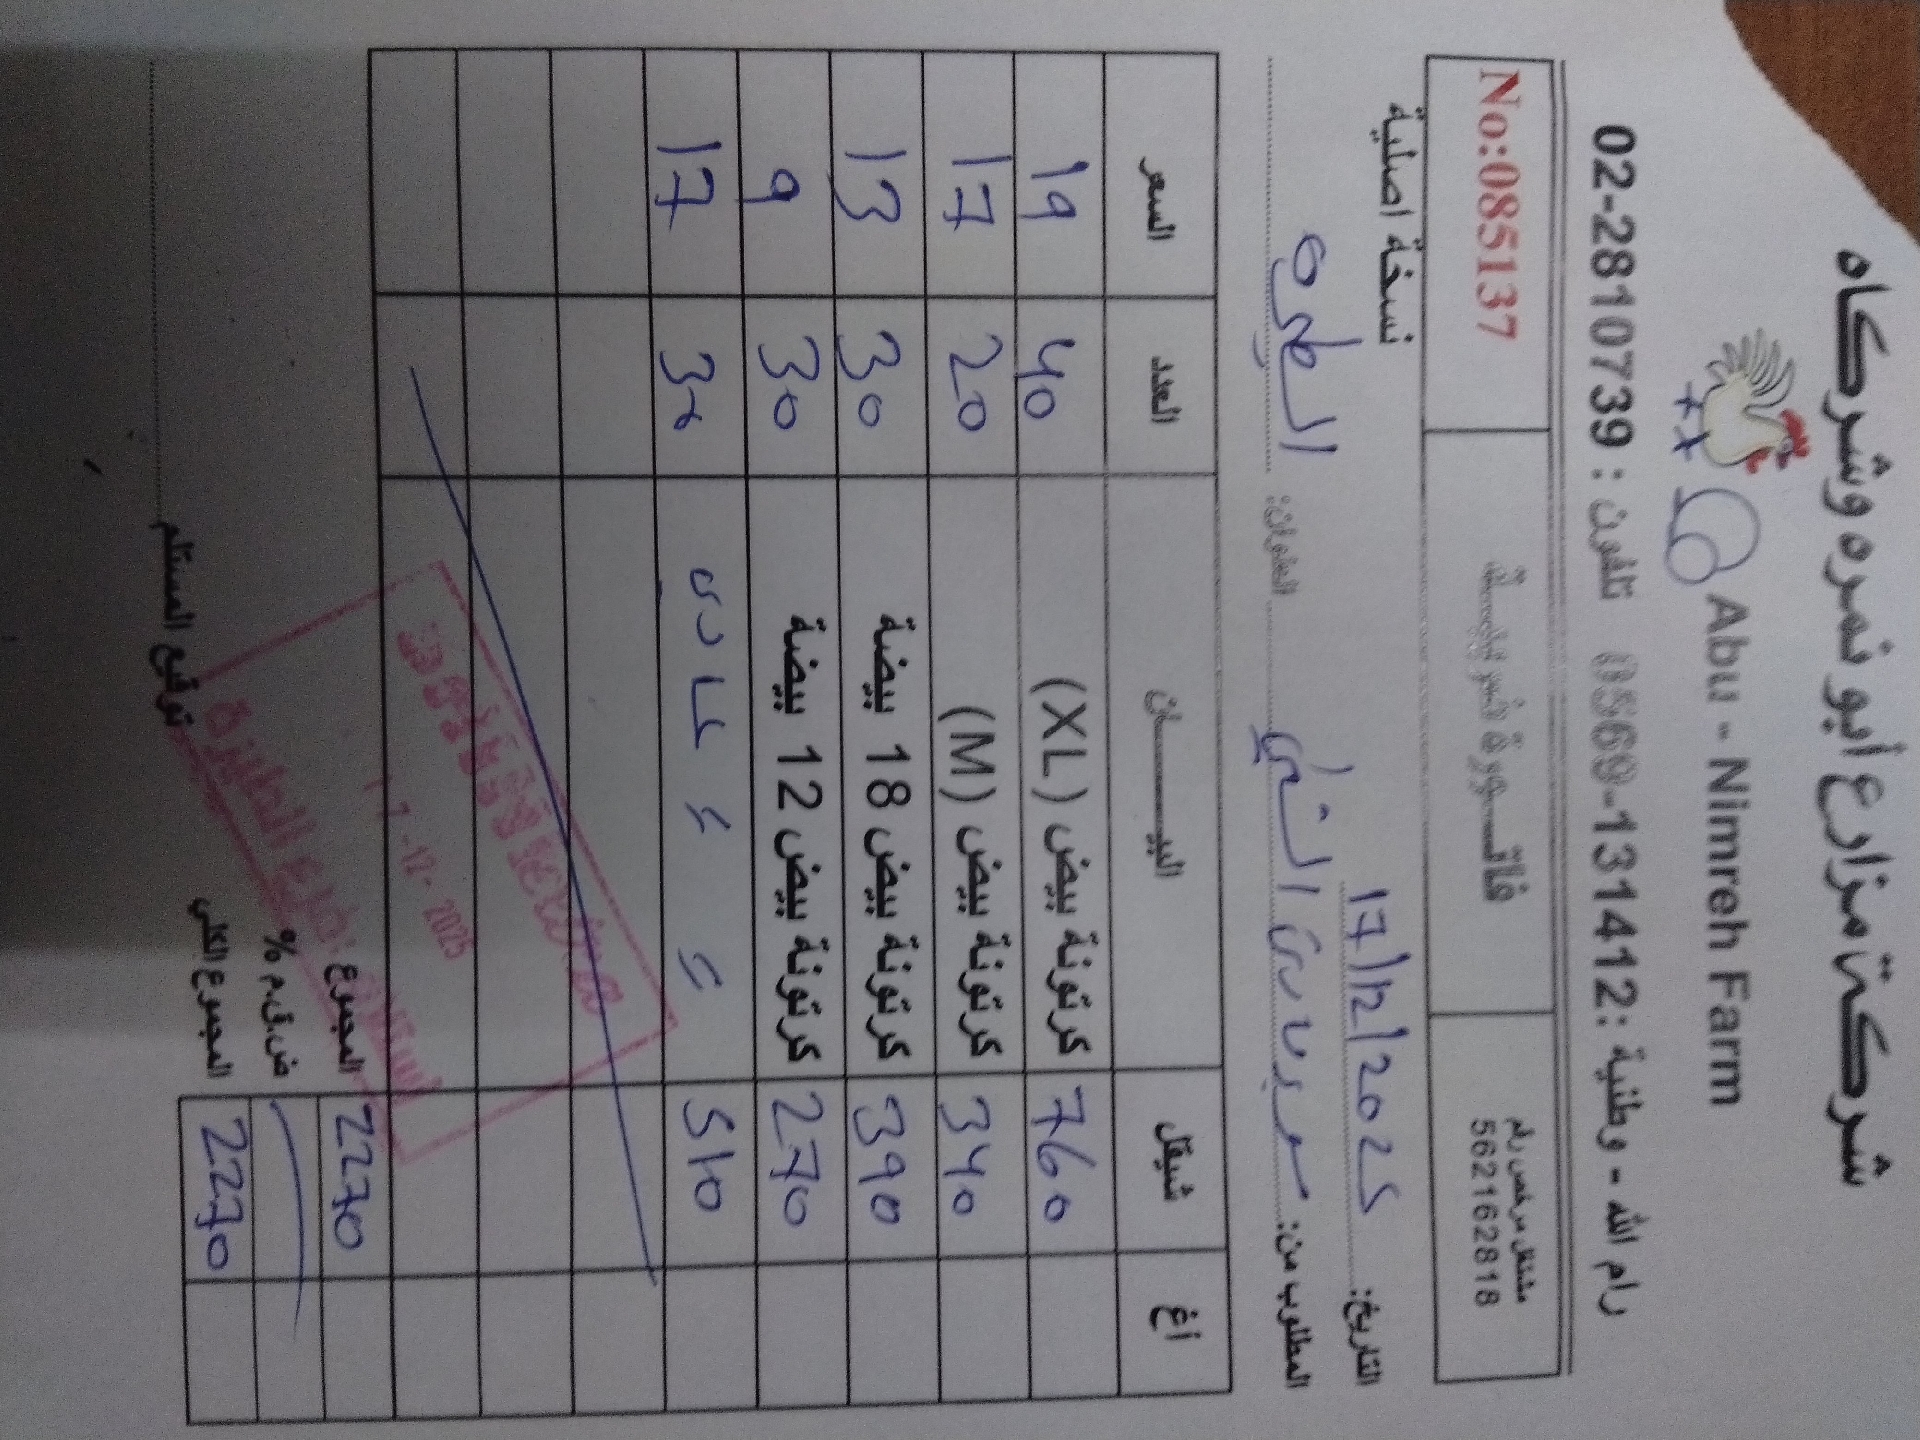 شركة مزارع أبو نمره وشركاه
Abu - Nimreh Farm
رام الله - وطنية: 0569-131412 تلفون: 02-2810739
مشتغل مرخص رقم
562162818
فاتورة ضريبية
No:085137
التاريخ: 17/12/2025
نسخة اصلية
المطلوب من: العنوان: الطيره
أغ شيقل البيان العدد السعر
760 كرتونة بيض (XL) 40 19
340 كرتونة بيض (M) 20 17
390 كرتونة بيض 18 بيضة 30 13
270 كرتونة بيض 12 بيضة 30 9
510 = = عادي 30 17
17-12-2025
فرع الطيرة
المجموع 2270
ض.ق.م %
المجموع الكلي 2270
توقيع المستلم